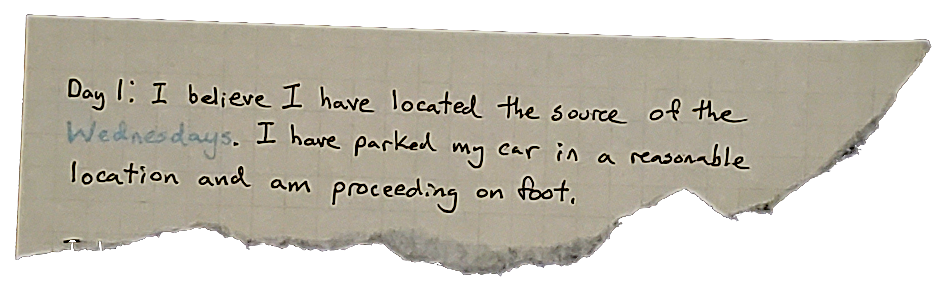 Day 1: I believe I have located the source of the
Wednesdays. I have parked my car in a reasonable
location and am proceeding on foot.